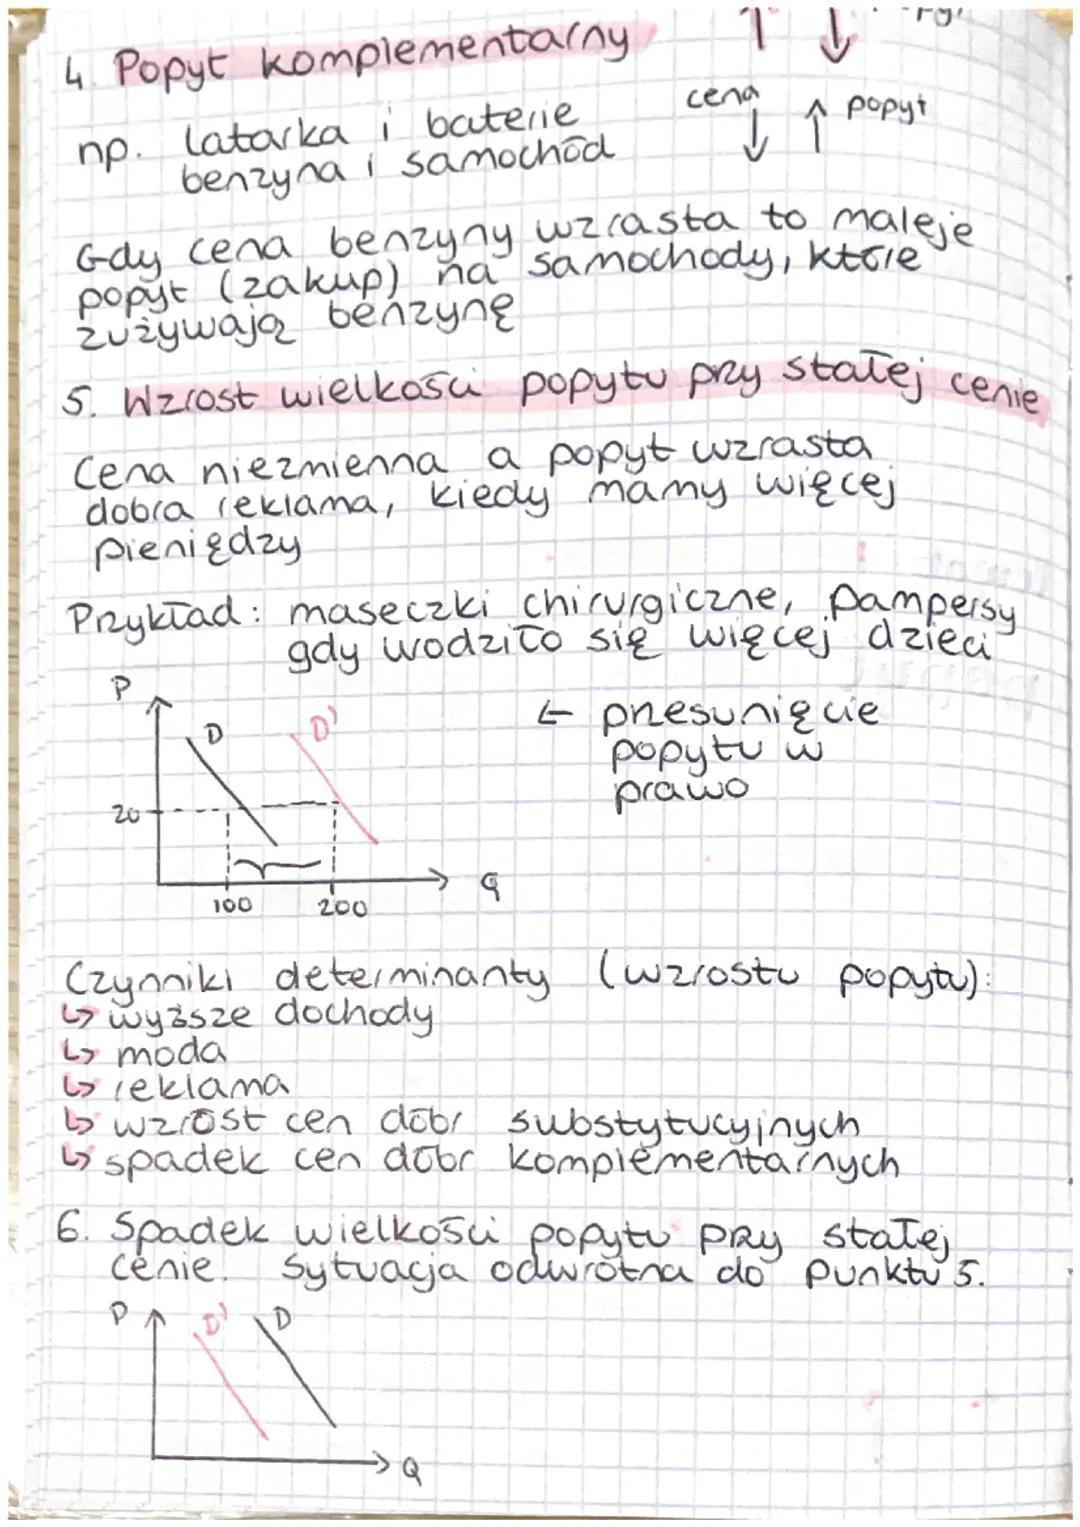 4. Popyt komplementarny ↑ ↓
np. latarka i baterie cena ↓ ↑ popyt
benzyna i samochód
Gdy cena benzyny wzrasta to maleje
popyt (zakup) na samochody, które
zużywają benzynę
5. Wzrost wielkości popytu przy stałej cenie
Cena niezmienna a popyt wzrasta
dobra reklama, kiedy mamy więcej
pieniędzy
Przykład: maseczki chirurgiczne, pampersy
gdy urodziło się więcej dzieci
P
D D'
← przesunięcie
popytu w
prawo
20
Q
100 200
Czynniki determinanty (wzrostu popytu):
↳ wyższe dochody
↳ moda
↳ reklama
↳ wzrost cen dóbr substytucyjnych
↳ spadek cen dóbr komplementarnych
6. Spadek wielkości popytu przy stałej
cenie. Sytuacja odwrotna do punktu 5.
P D' D
Q